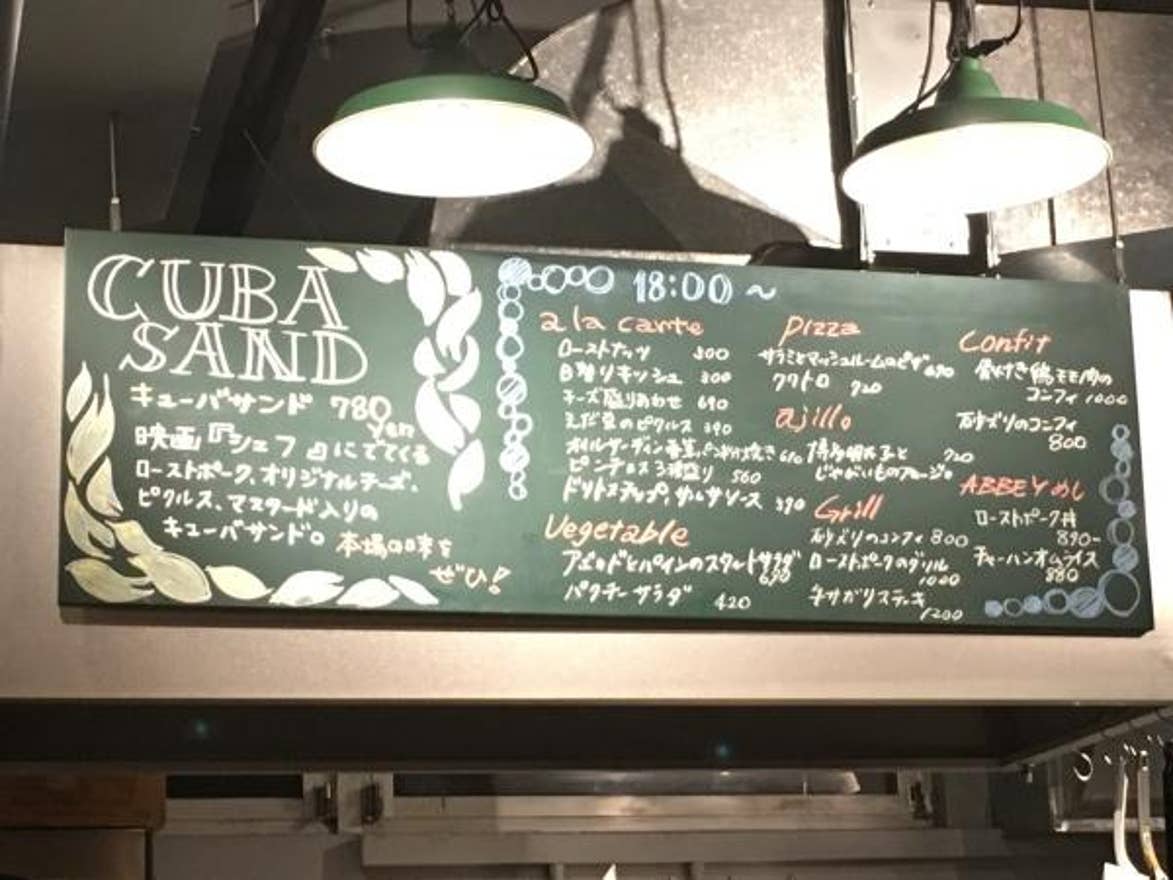 CUBA
SAND
キューバサンド 780
yen
映画『シェフ』にでてくる
ローストポーク、オリジナルチーズ、
ピクルス、マスタード入りの
キューバサンド。本場の味を
ぜひ!
18:00~
a la carte
ローストナッツ 300
日替りキッシュ 300
チーズ盛りあわせ 690
えだ豆のピクルス 390
オイルサーディン香草パン粉焼き 610
ピンチョス3種盛り 560
ドリトスチップ、サルサソース 390
Vegetable
アボカドとパインのスタートサラダ
690
パクチーサラダ 420
pizza
サラミとマッシュルームのピザ 690
クワトロ 720
ajillo
博多明太子と 720
じゃがいものアヒージョ
Grill
砂ズリのコンフィ 800
ローストポークのグリル
1000
牛サガリステーキ
1200
Confit
骨付き鶏モモ肉の
コンフィ 1000
砂ズリのコンフィ
800
ABBEYめし
ローストポーク丼
890-
チャーハンオムライス
880